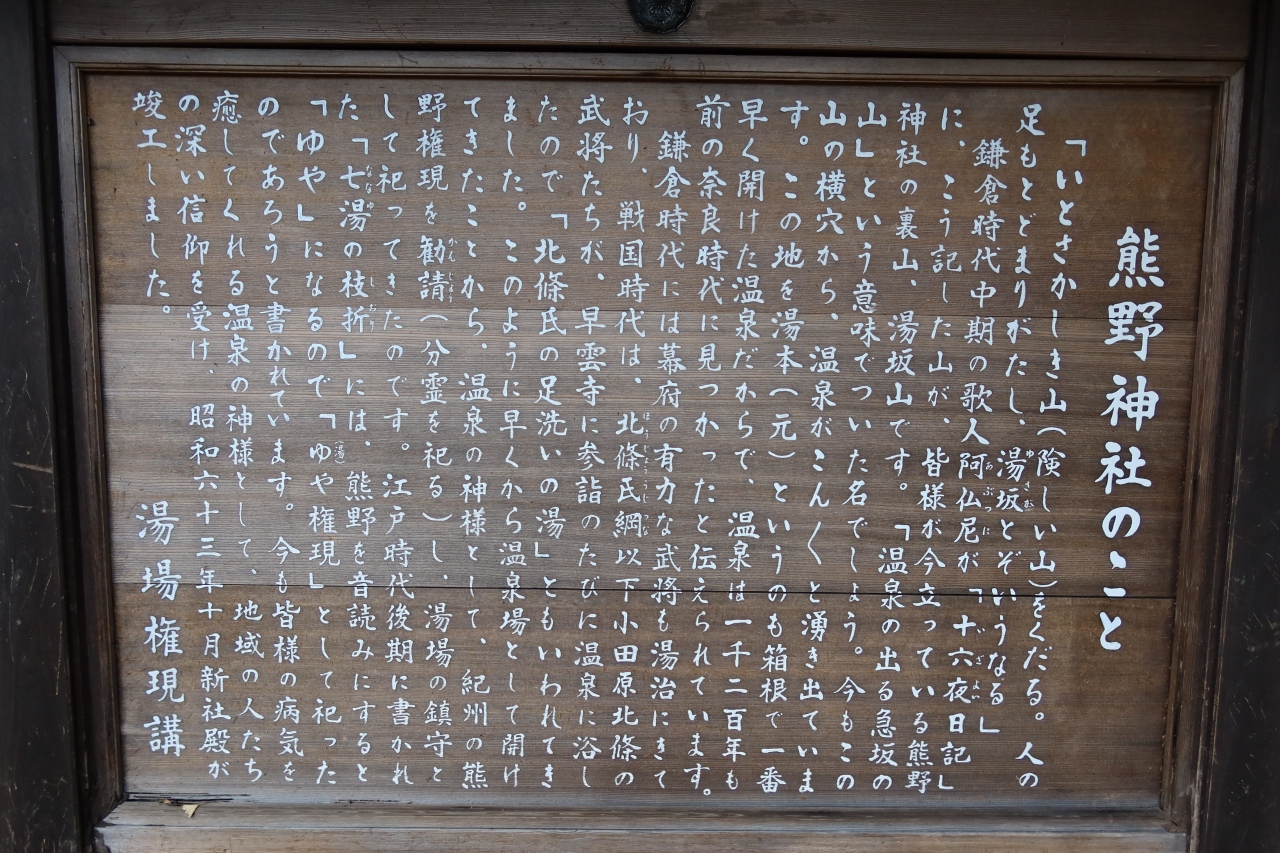 熊野神社のこと
「いとさかしき山(険しい山)をくだる。人の
足もとどまりがたし、湯坂とぞいうなる」
鎌倉時代中期の歌人阿仏尼が「十六夜日記」
に、こう記した山が、皆様が今立っている熊野
神社の裏山、湯坂山です。「温泉の出る急坂の
山」という意味でついた名でしょう。今もこの
山の横穴から、温泉がこん〱と湧き出ていま
す。この地を湯本(元)というのも箱根で一番
早く開けた温泉だからで、温泉は一千二百年も
前の奈良時代に見つかったと伝えられています。
鎌倉時代には幕府の有力な武将も湯治にきて
おり、戦国時代は、北條氏綱以下小田原北條の
武将たちが、早雲寺に参詣のたびに温泉に浴し
たので「北條氏の足洗いの湯」ともいわれてき
ました。このように早くから温泉場として開け
てきたことから、温泉の神様として、紀州の熊
野権現を勧請(分霊を祀る)し、湯場の鎮守と
して祀ってきたのです。江戸時代後期に書かれ
た「七湯の枝折」には、熊野を音読みにすると
「ゆや」になるので「ゆや(湯)権現」として祀った
のであろうと書かれています。今も皆様の病気を
癒してくれる温泉の神様として、地域の人たち
の深い信仰を受け、昭和六十三年十月新社殿が
竣工しました。
湯場権現講